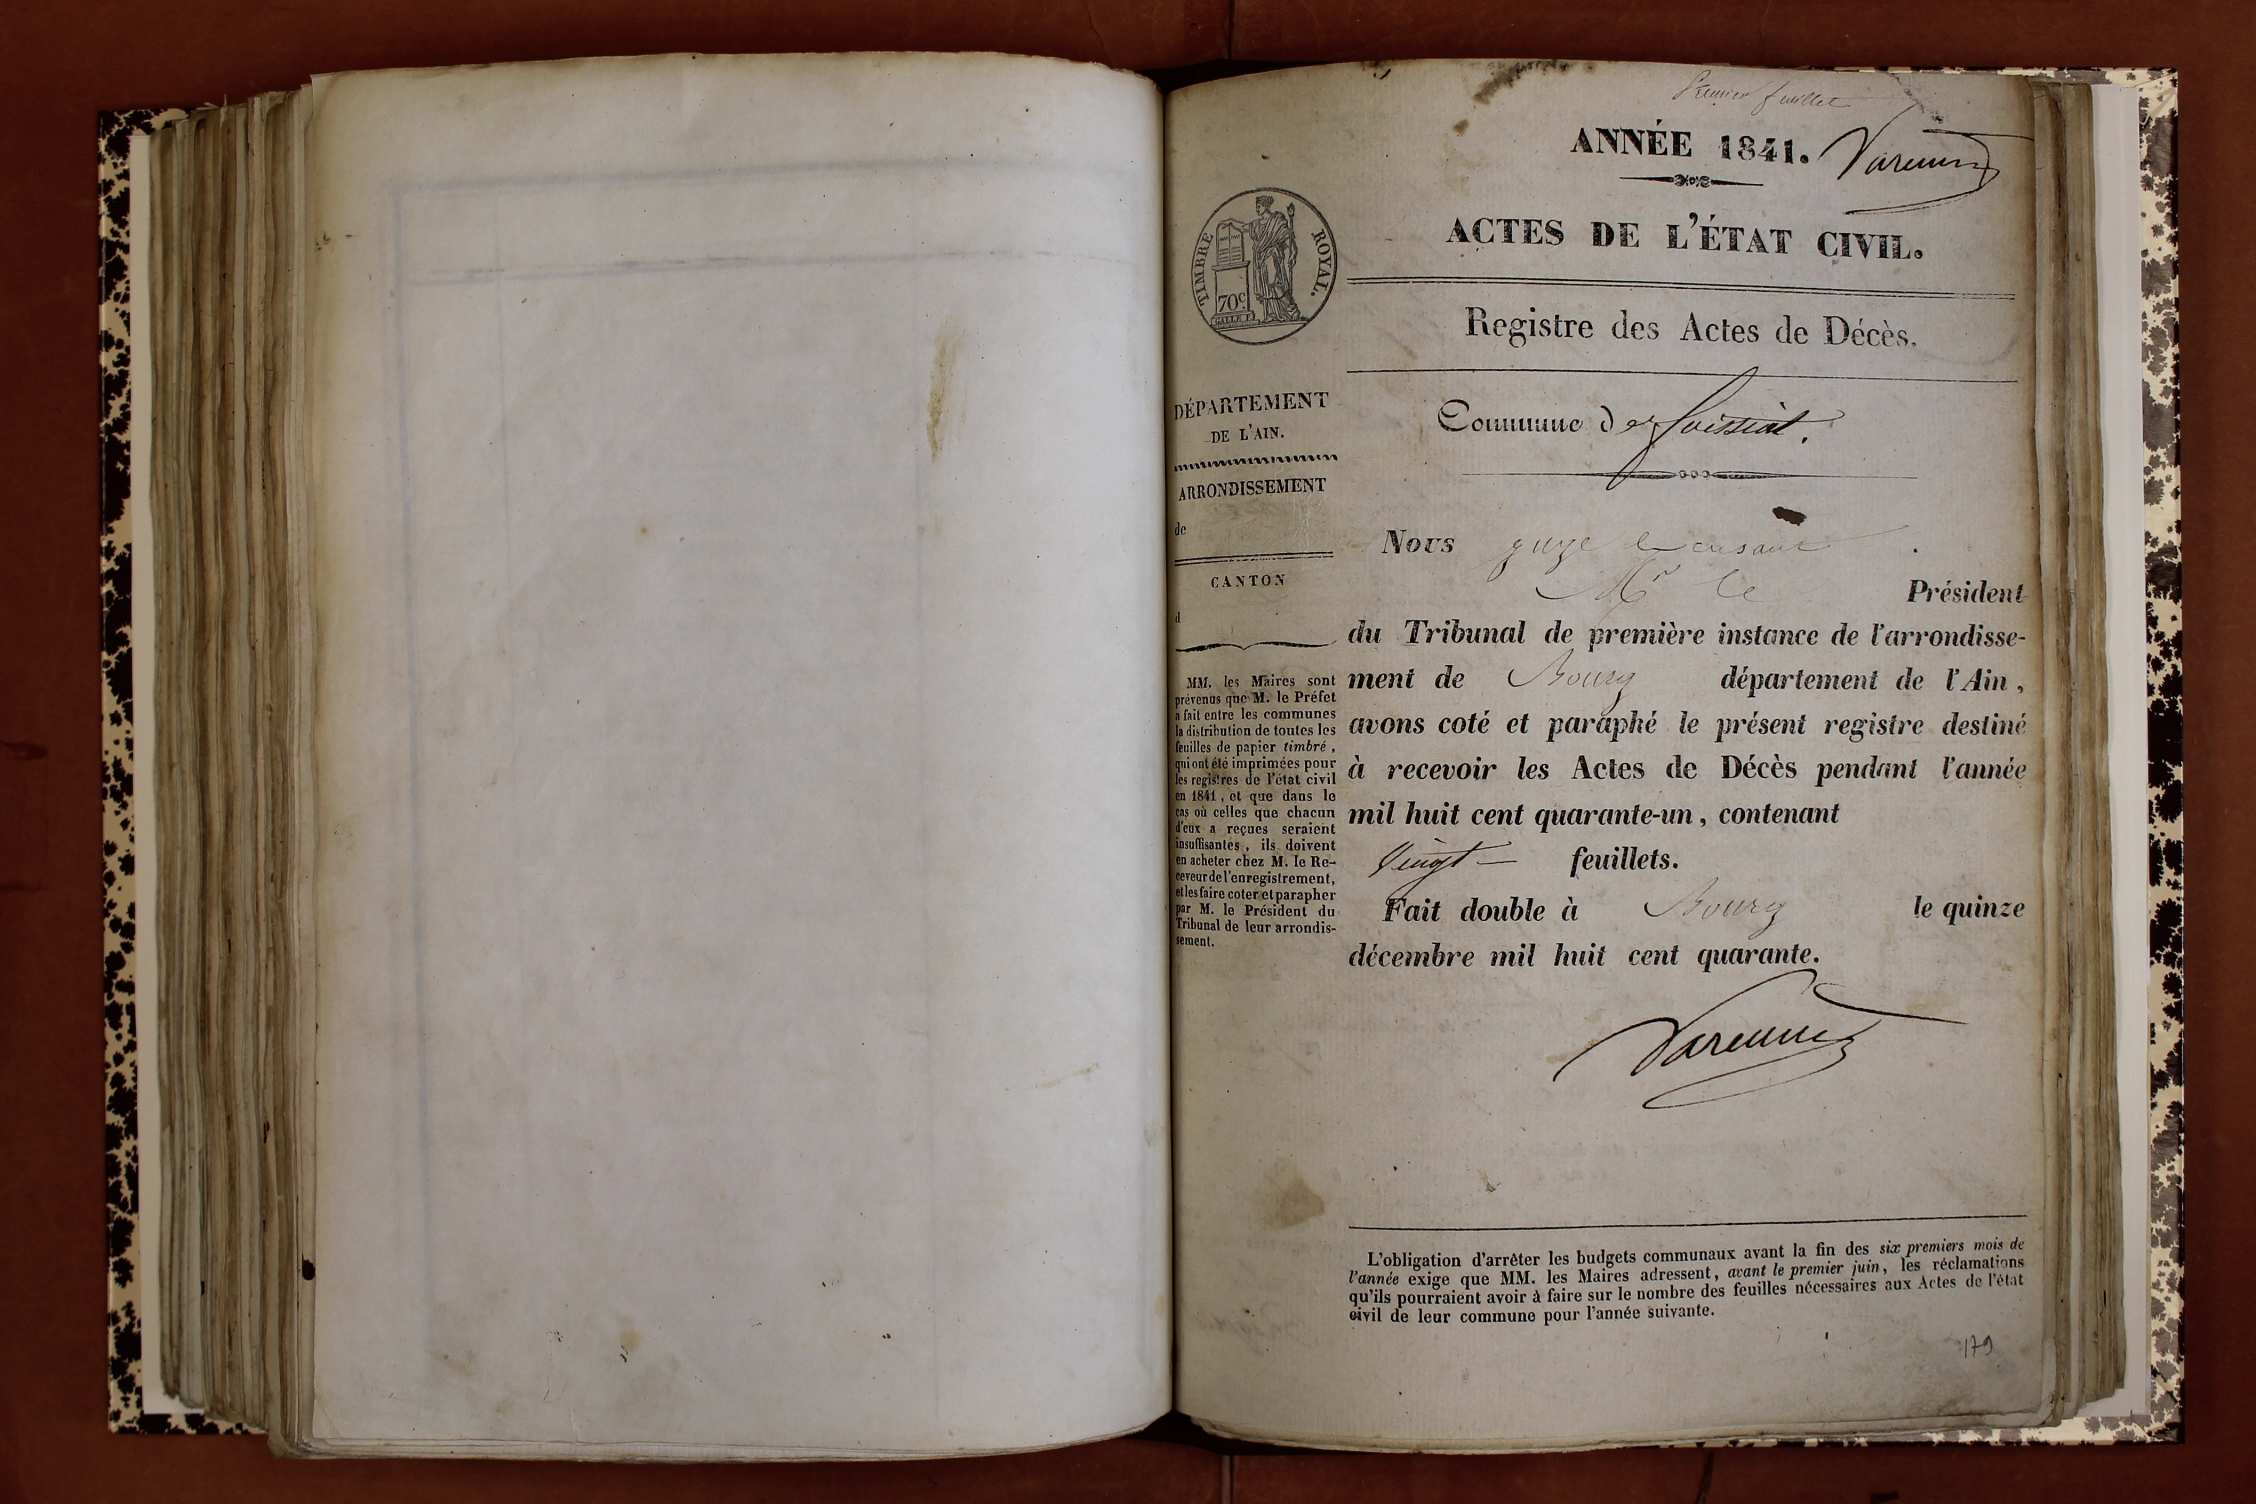 Premier feuillet
ANNÉE 1841.
Varenne
ACTES DE L'ÉTAT CIVIL.
TIMBRE ROYAL.
70 c.
Registre des Actes de Décès.
Commune de foissiat.
DÉPARTEMENT
DE L'AIN.
ARRONDISSEMENT
de
CANTON
d
MM. les Maires sont
prévenus que M. le Préfet
a fait entre les communes
la distribution de toutes les
feuilles de papier timbré,
qui ont été imprimées pour
les registres de l'état civil
en 1841, et que dans le
cas où celles que chacun
d'eux a reçues seraient
insuffisantes, ils doivent
en acheter chez M. le Re-
ceveur de l'enregistrement,
et les faire coter et parapher
par M. le Président du
Tribunal de leur arrondis-
sement.
Nous juge
Mr le Président
du Tribunal de première instance de l'arrondisse-
ment de Bourg département de l'Ain,
avons coté et paraphé le présent registre destiné
à recevoir les Actes de Décès pendant l'année
mil huit cent quarante-un, contenant
Vingt feuillets.
Fait double à Bourg le quinze
décembre mil huit cent quarante.
Varenne
L'obligation d'arrêter les budgets communaux avant la fin des six premiers mois de
l'année exige que MM. les Maires adressent, avant le premier juin, les réclamations
qu'ils pourraient avoir à faire sur le nombre des feuilles nécessaires aux Actes de l'état
civil de leur commune pour l'année suivante.
179